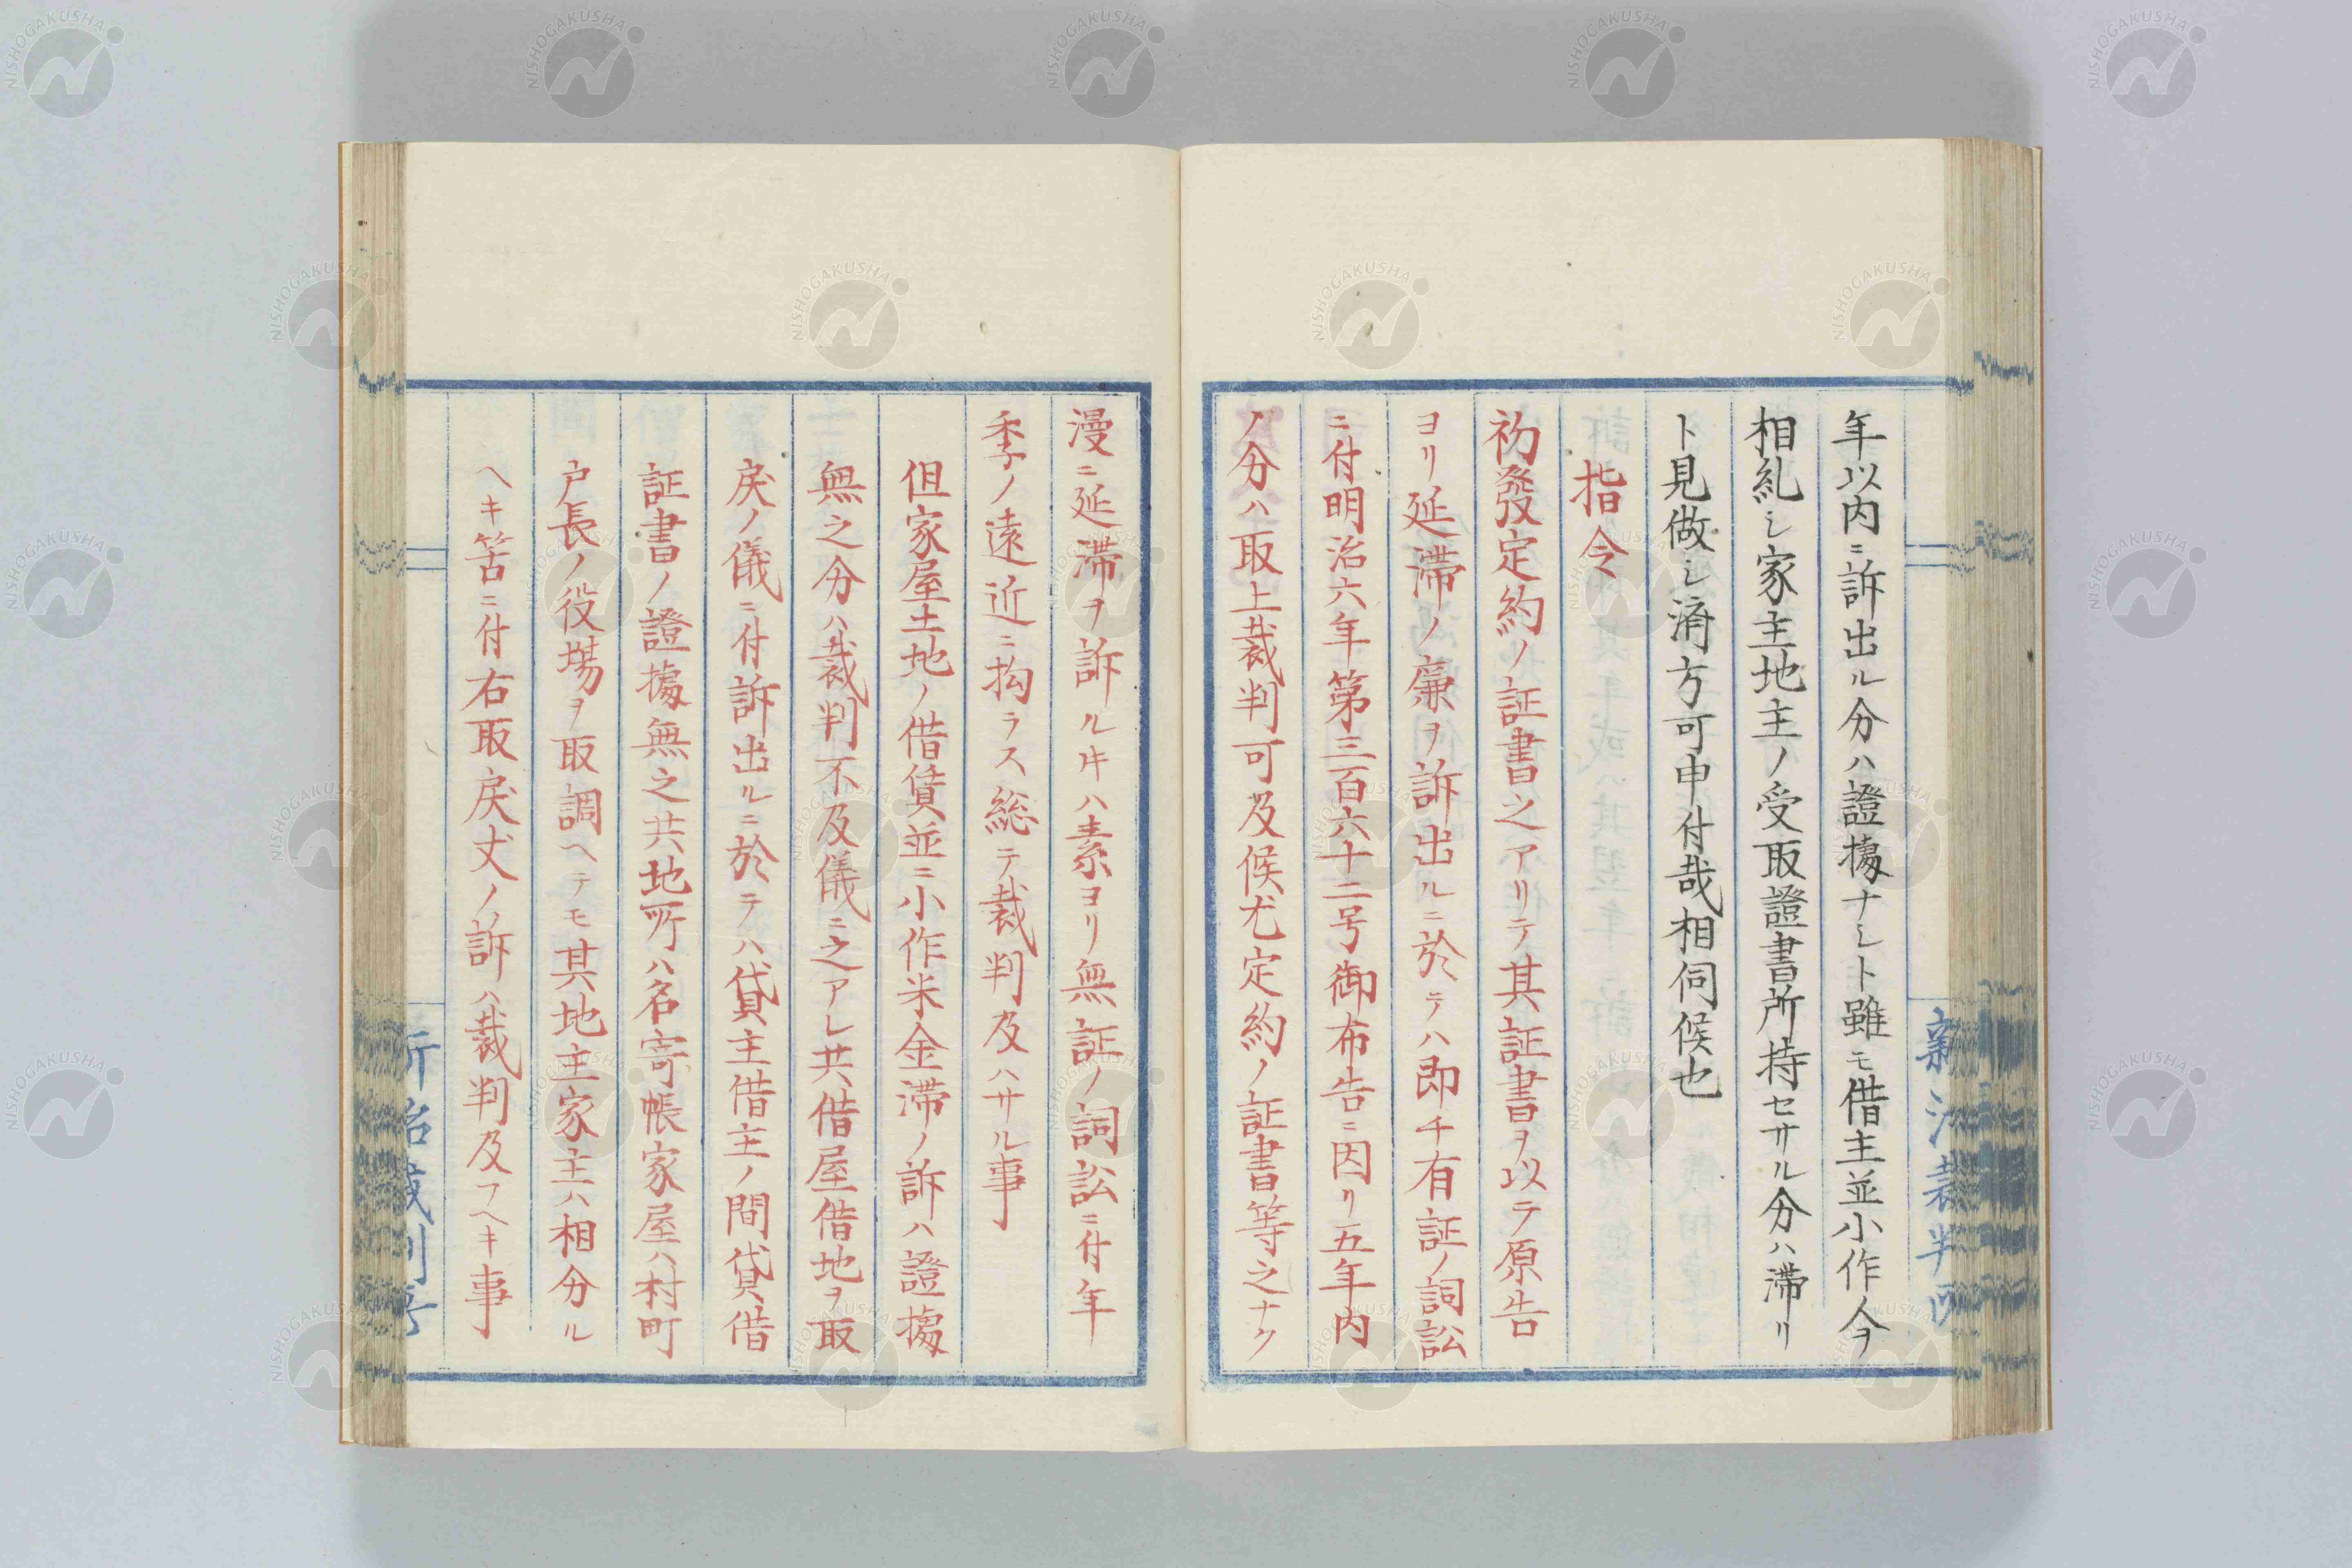 年以内ニ訴出ル分ハ證據ナシト雖モ借主並小作今
相糺シ家主地主ノ受取證書所持セサル分ハ滞リ
ト見做シ済方可申付哉相伺候也
指令
初發定約ノ証書之アリテ其証書ヲ以テ原告
ヨリ延滞ノ廉ヲ訴出ルニ於テハ即チ有証ノ詞訟
ニ付明治六年第三百六十二号御布告ニ因リ五年内
ノ分ハ取上裁判可及候尤定約ノ証書等之ナク
漫ニ延滞ヲ訴ルヰハ素ヨリ無証ノ詞訟ニ付年
季ノ遠近ニ拘ラス総テ裁判及ハサル事
但家屋土地ノ借賃並ニ小作米金滞ノ訴ハ證據
無之分ハ裁判不及儀ニ之アレ共借屋借地ヲ取
戻ノ儀ニ付訴出ルニ於テハ貸主借主ノ間貸借
証書ノ證據無之共地所ハ名寄帳家屋ハ村町
戸長ノ役場ヲ取調ヘテモ其地主家主ハ相分ル
ヘキ筈ニ付右取戻丈ノ訴ハ裁判及フヘキ事
NISHOGAKUSHA